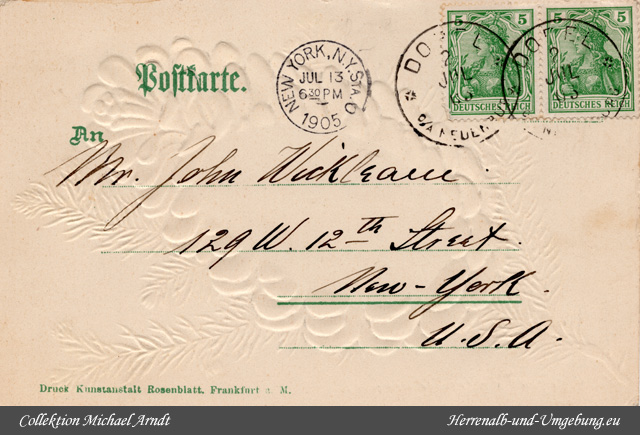 Postkarte.
NEW YORK, N.Y. STA. O
JUL 13
6 30 PM
1905
5 5
DEUTSCHES REICH
5 5
DEUTSCHES REICH
DOBEL
2
JUL
DOBEL
2
JUL
An
Mr. John
129 W. 12th Street.
New-York.
U.S.A.
Druck Kunstanstalt Rosenblatt, Frankfurt a. M.
Collektion Michael Arndt
Herrenalb-und-Umgebung.eu